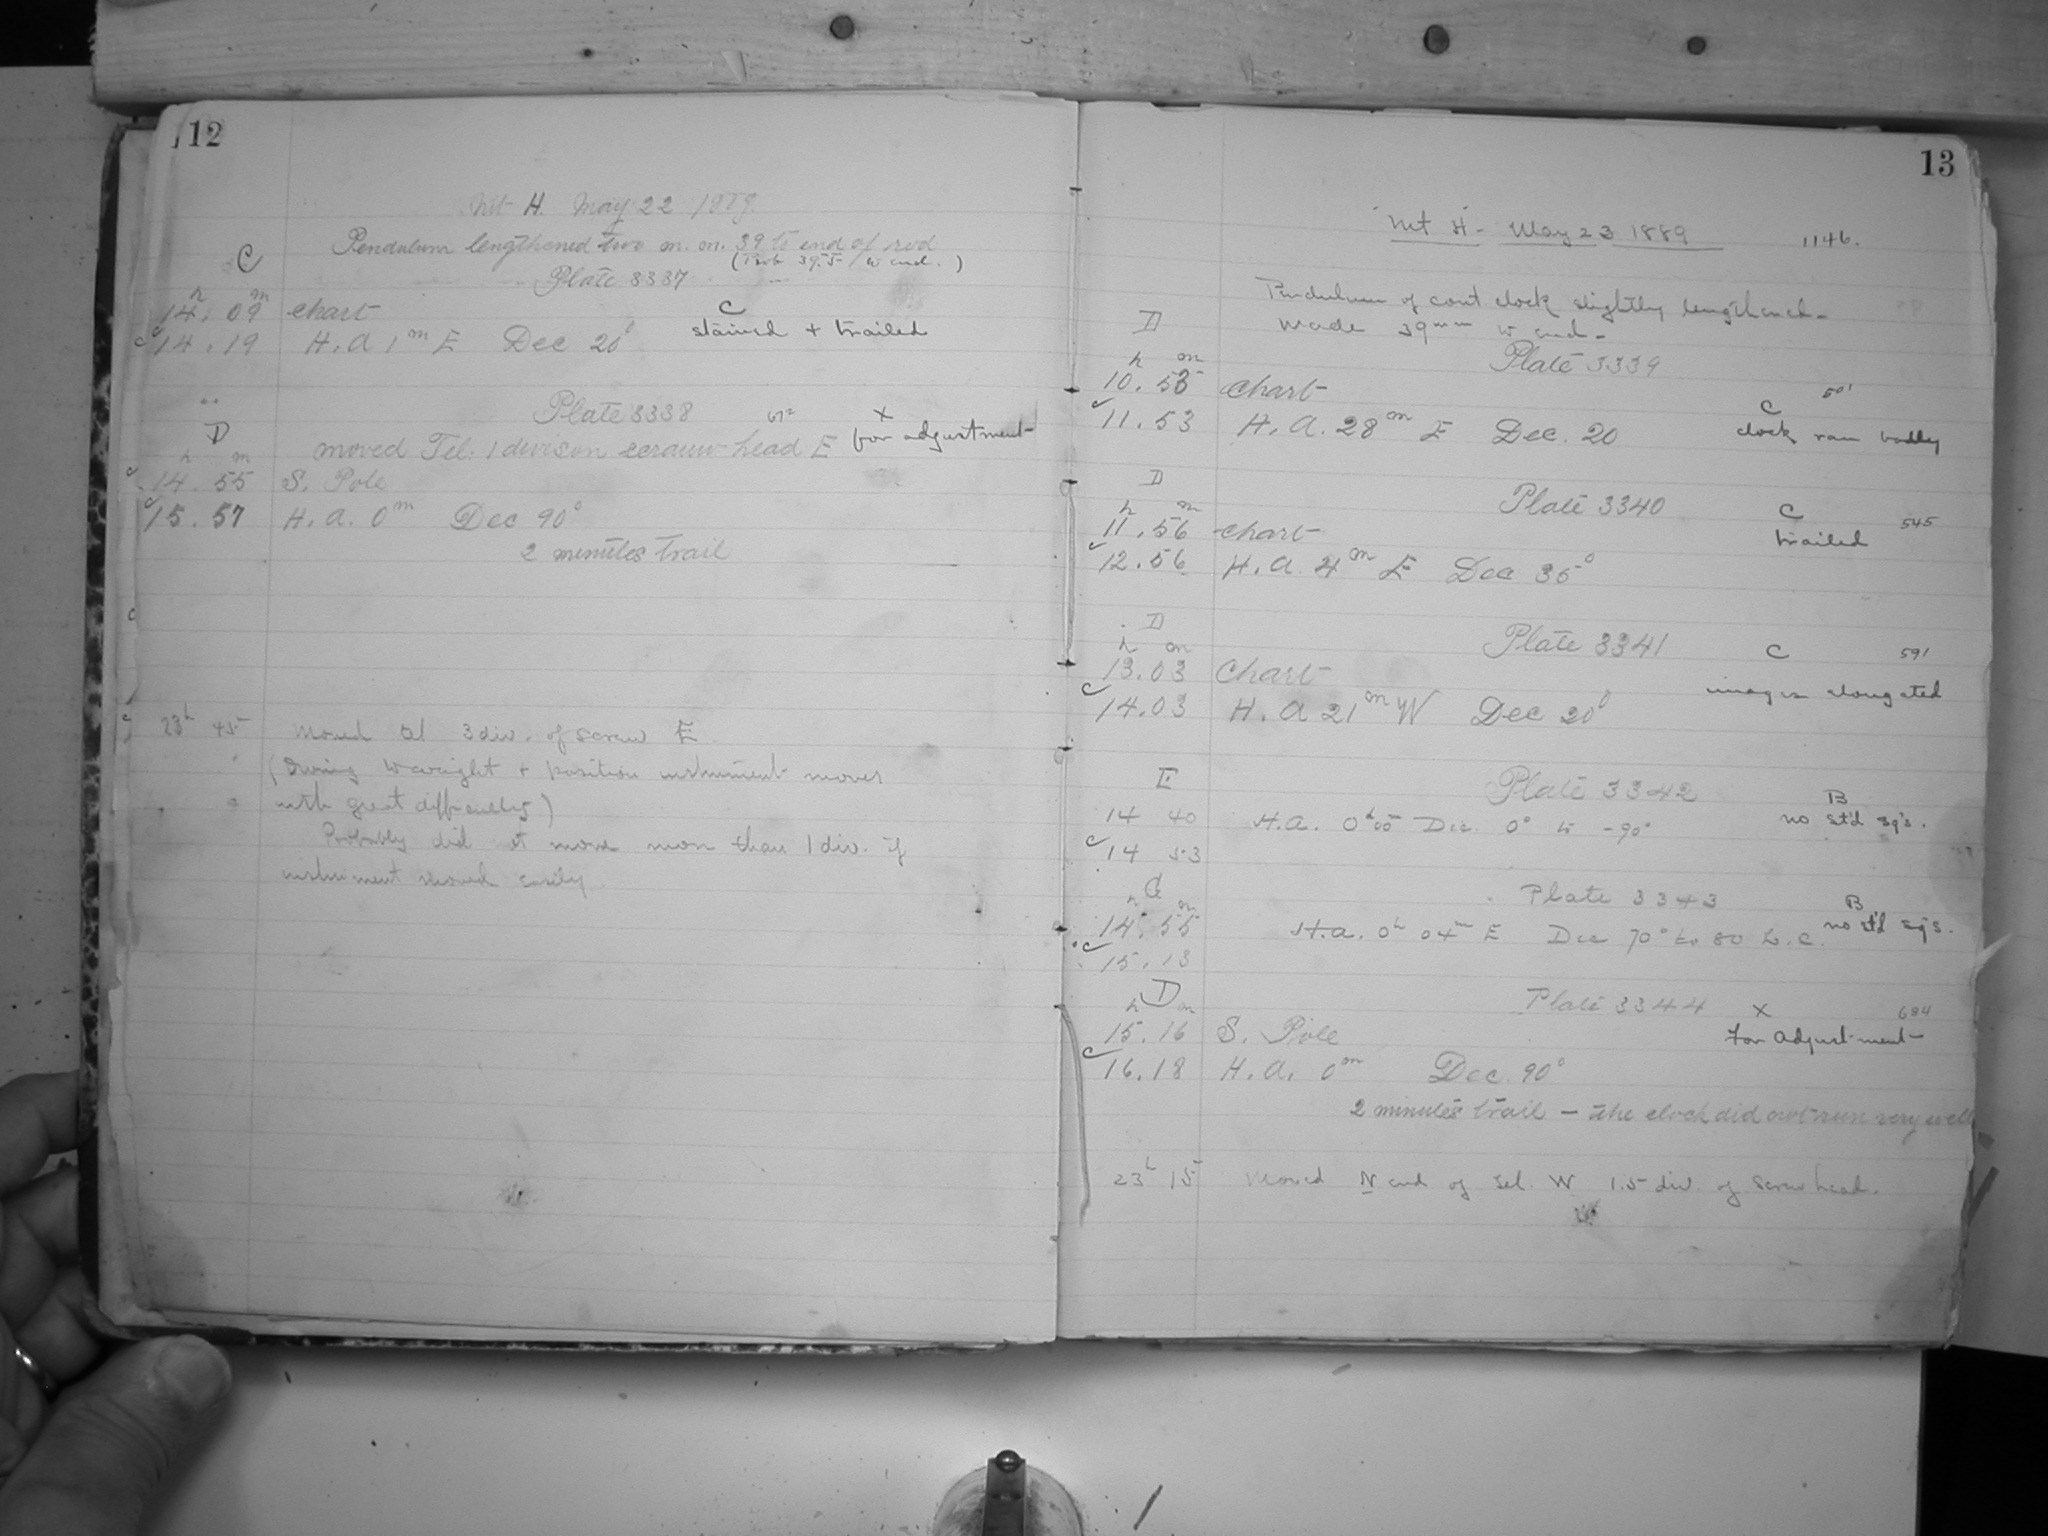 12
Mt H. May 22 1889.
Pendulum lengthened two m.m. 39 to end of rod
(Prob 39.5 to end.)
C
Plate 3337
h m
14. 09 chart
C
14. 19 H. A 1m E Dec 20°
stained + trailed
Plate 3338 672 X
D
moved Tel. 1 divison scrauw head E for adjustment
h m
14. 55 S. Pole
15. 57 H. A. 0m Dec 90°
2 minutes trail
23h 45 Moved 3 div. of screw E.
(Owing to weight + position instrument moves
with great difficulty)
Probably did not move more than 1 div. if
instrument moved easily.
13
Mt H - May 23 1889 1146.
Pendulum of cont. clock slightly lengthened -
Made 39mm to end -
D
Plate 3339
h m
10. 53 chart
C 501
11. 53 H. A. 28m E Dec. 20
clock ran badly
D
Plate 3340 C 545
h m
11. 56 chart
trailed
12. 56 H. A. 4m E Dec 35°
D
Plate 3341 C 591
h m
13. 03 Chart
images elongated
14. 03 H. A 21m W Dec 20°
E
Plate 3342 B
14 40 H.A. 0h 05 Dec. 0° to -90° no st'd sq's.
14 53
C
Plate 3343 B
h m
14. 55 H.A. 0h 04m E Dec 70° to 80 L. C. no st'd sq's.
15. 13
D
Plate 3344 X 684
h m
15. 16 S. Pole For adjustment
16. 18 H. A. 0m Dec. 90°
2 minutes trail - the clock did not run very well
23h 15 Moved N end of tel. W 1.5 div. of screw head.